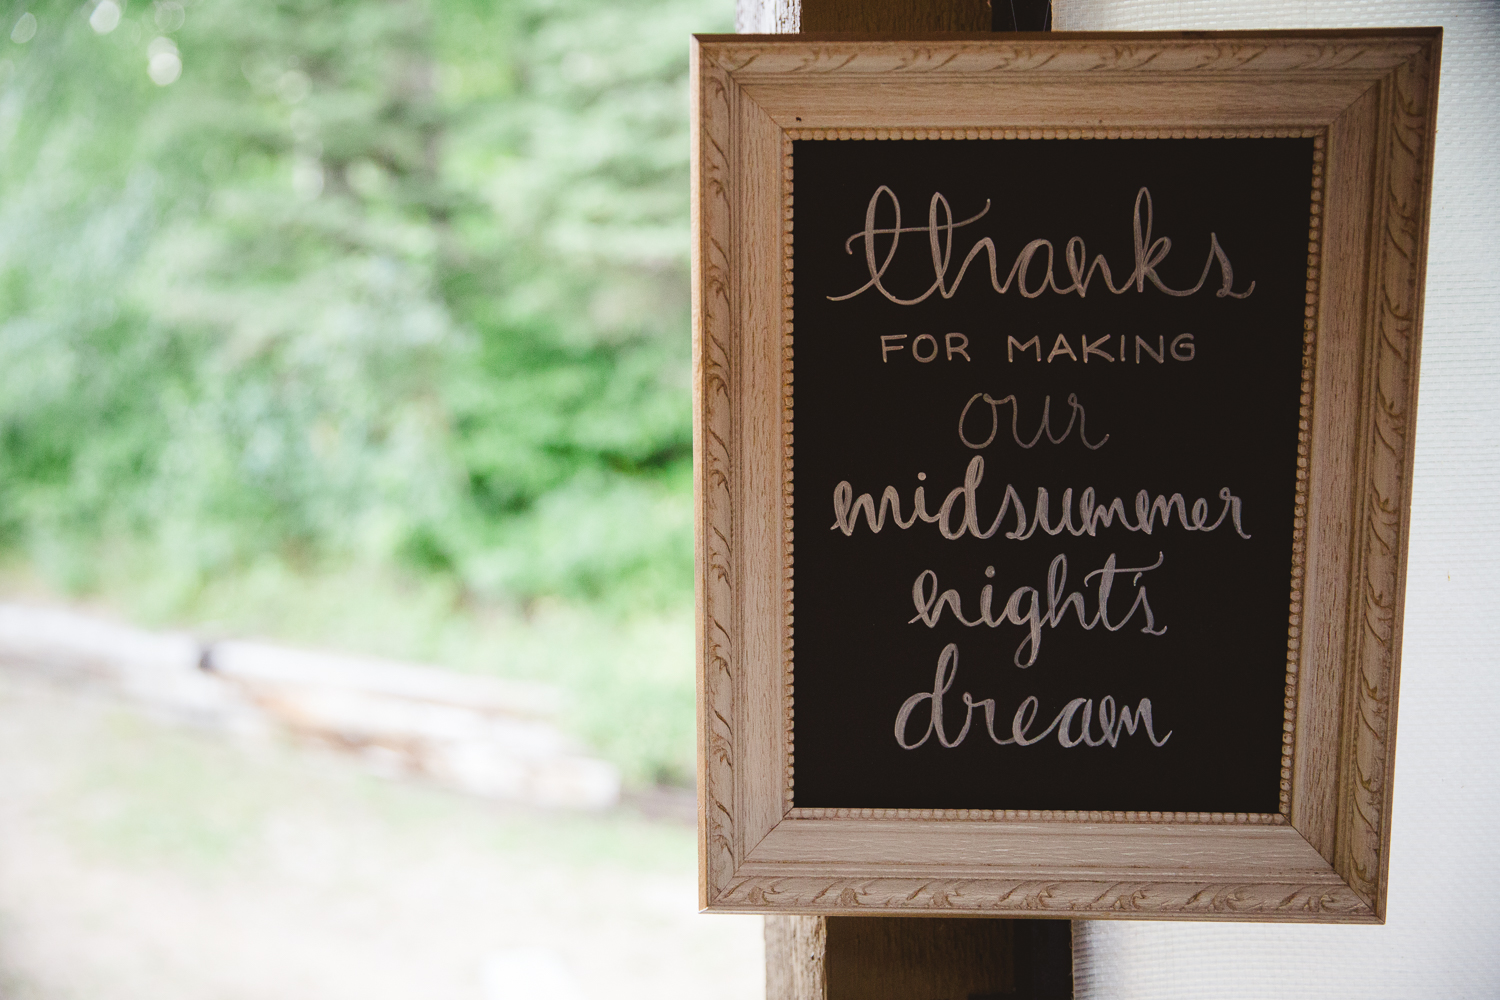 thanks
FOR MAKING
our
midsummer
night's
dream